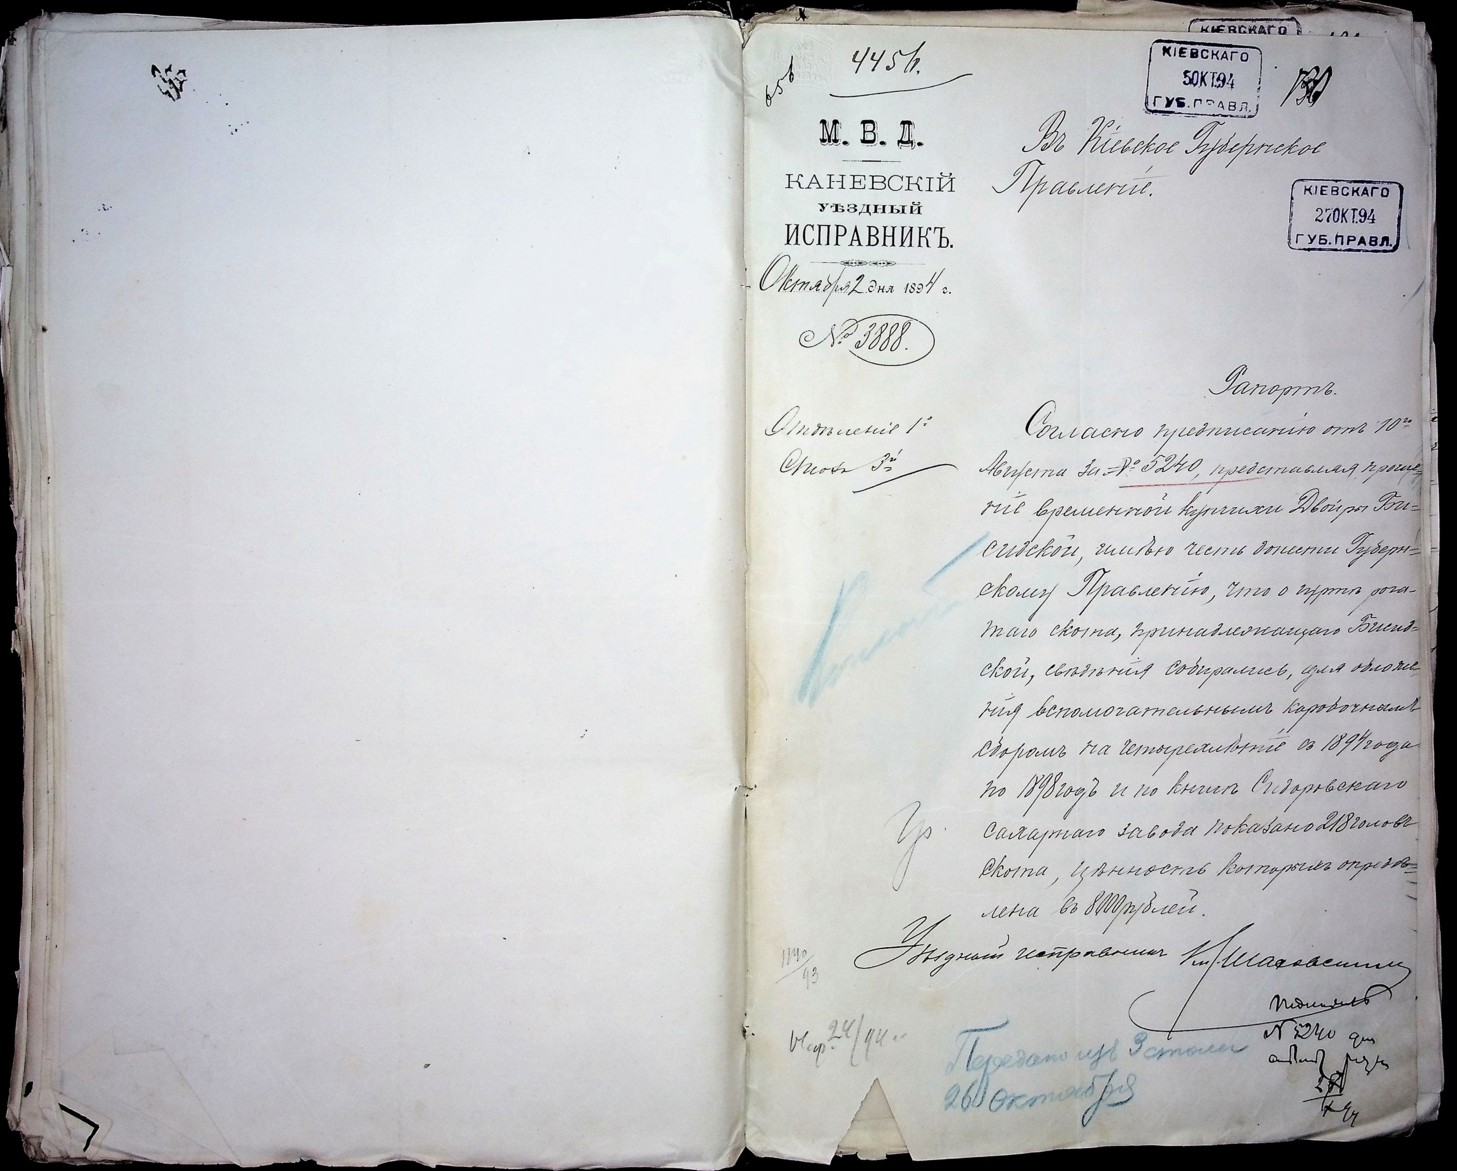 4456.
656
КІЕВСКАГО
КІЕВСКАГО
5 ОКТ.94
ГУБ.ПРАВЛ.
130
М. В. Д.
КАНЕВСКІЙ
УѢЗДНЫЙ
ИСПРАВНИКЪ.
Октября 2 дня 1894 г.
№ 3888.
Въ Кіевское Губернское
Правленіе.
КІЕВСКАГО
27 ОКТ.94
ГУБ.ПРАВЛ.
Отдѣленіе 1е
Столъ 3й
Рапортъ.
Согласно предписанію отъ 10го
Августа за № 5240, представляя проше=
ніе временной купчихи Двойры Би=
сидской, имѣю честь донести Губерн=
скому Правленію, что о гуртѣ рога-
таго скота, принадлежащаго Бисид=
ской, свѣдѣнія собирались, для обложе
нія вспомогательнымъ коробочнымъ
сборомъ на четырехлѣтіе съ 1894 года
по 1898 годъ и по книгѣ Сидоровскаго
сахарнаго завода показано 218 головъ
скота, цѣнность которыхъ опредѣ=
лена въ 8000 рублей.
Уѣздный исправникъ Шаховской
1140/93
24/94
№ 5240
Передано изъ 3 стола
26 Октября